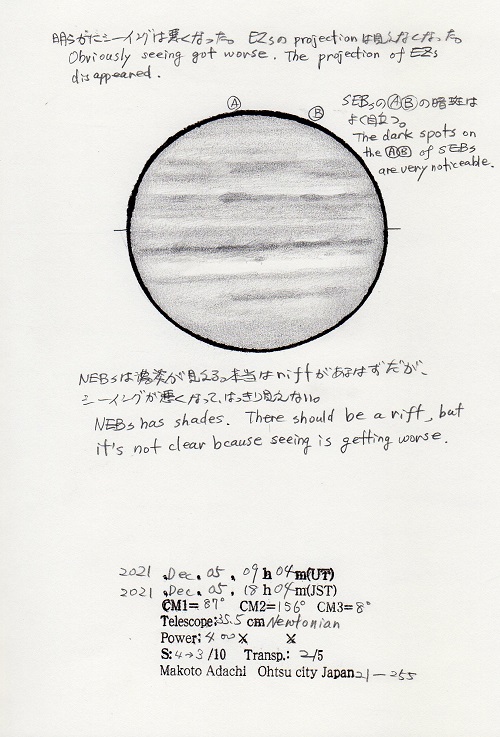 明らかにシーイングは悪くなった。EZsのprojectionは見えなくなった。
Obviously seeing got worse. The projection of EZs
disappeared.
Ⓐ
Ⓑ
SEBsのⒶⒷの暗斑は
よく目立つ。
The dark spots on
the ⒶⒷ of SEBs
are very noticeable.
NEBsは濃淡が見える。本当はriftがあるはずだが、
シーイングが悪くなって、はっきり見えない。
NEBs has shades. There should be a rift, but
it's not clear bcause seeing is getting worse.
2021 .Dec. 05 . 09 h 04 m(UT)
2021 .Dec. 05 . 18 h 04 m(JST)
CM1= 87° CM2= 156° CM3= 8°
Telescope: 35.5 cm Newtonian
Power: 400 × ×
S: 4→3 /10 Transp.: 2/5
Makoto Adachi Ohtsu city Japan 21-255